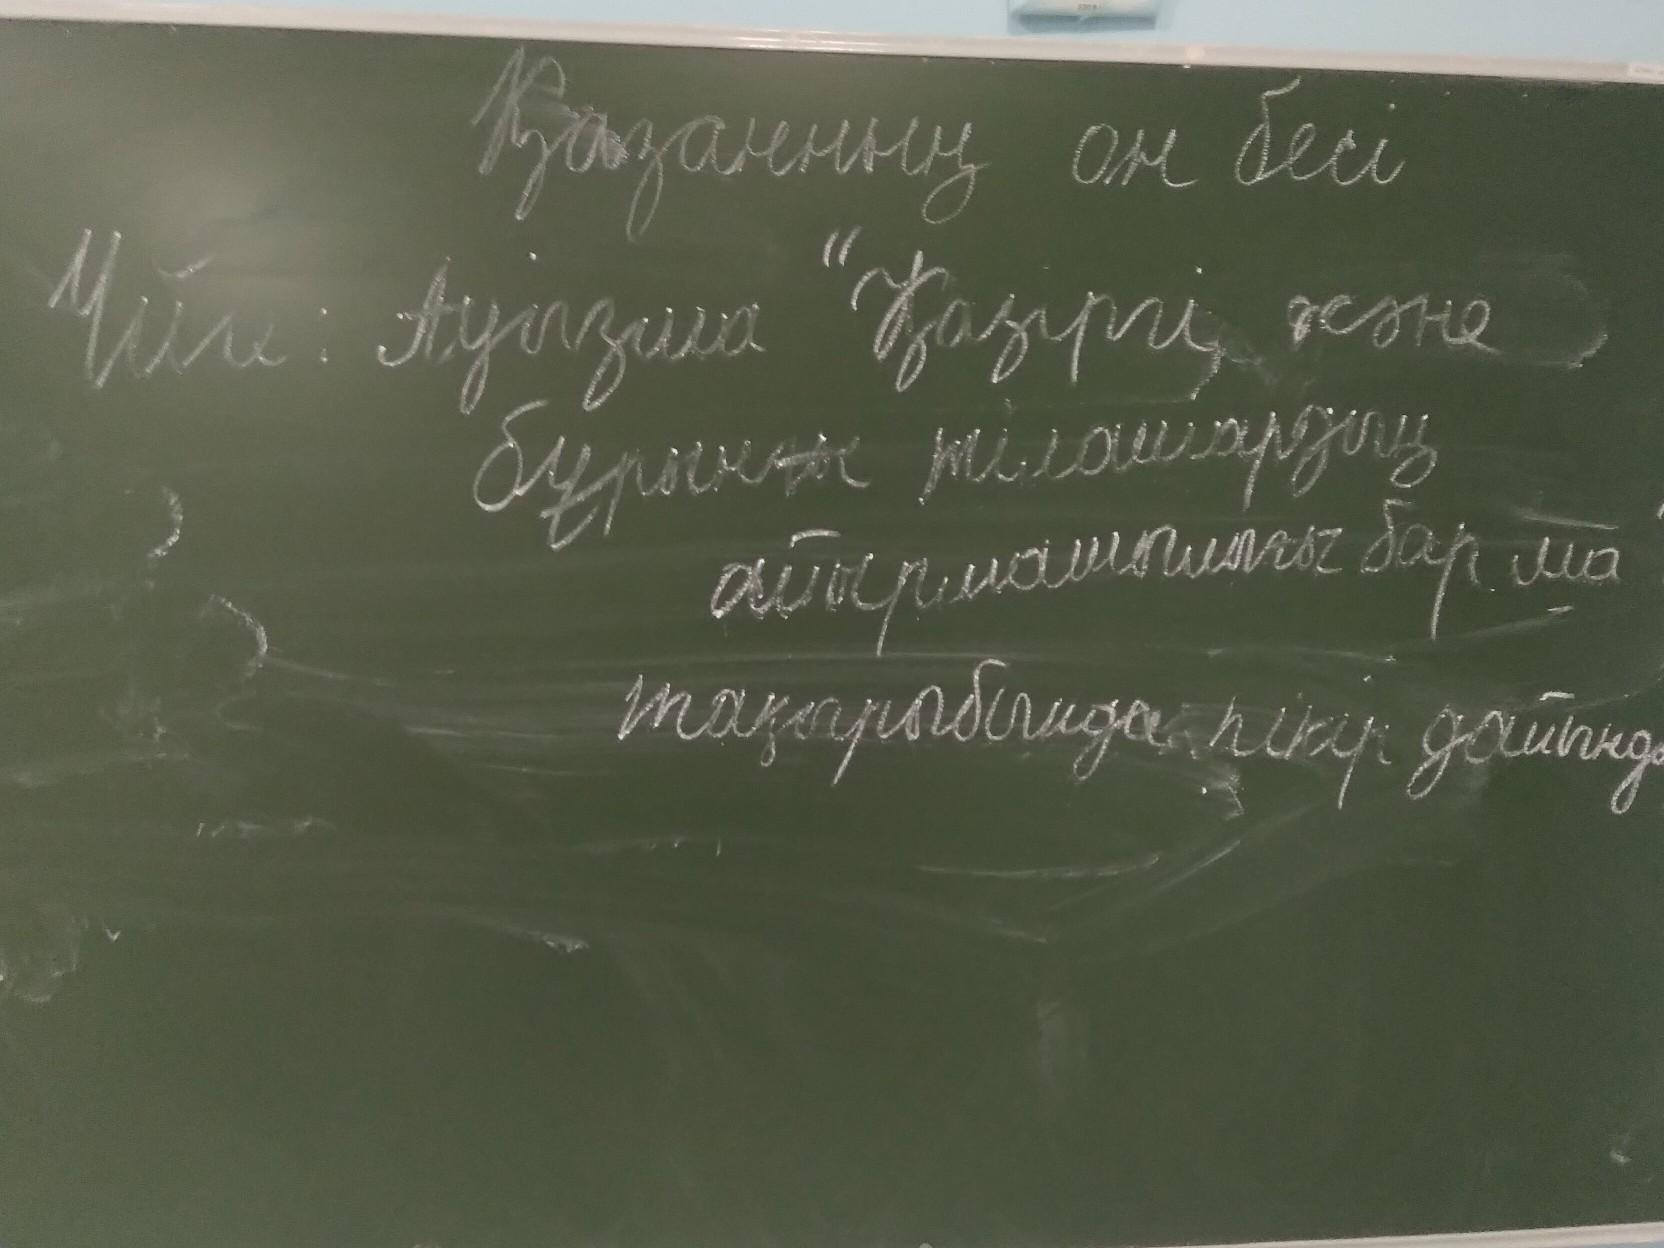 Қазанның он бесі
Үйге: Ауызша "Қазіргі және
бұрынғы тілашардың
айырмашылығы бар ма
тақырыбында пікір дайында